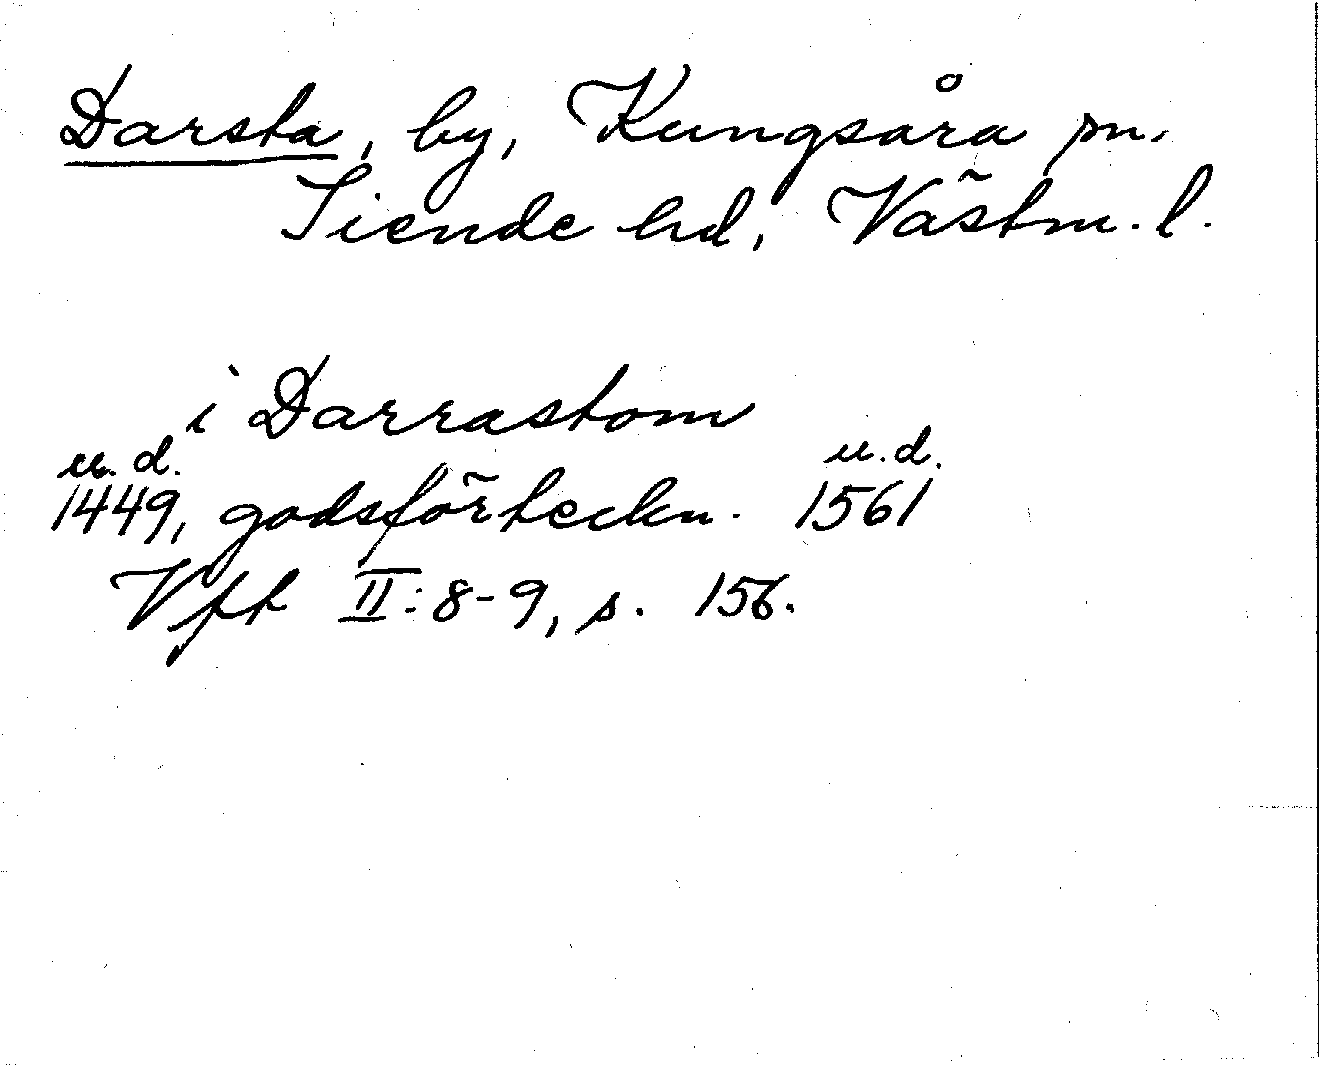 Darsta, by, Kungsåra sn,
Siende hd, Västm. l.
i Darrastom
u. d. u. d.
1449, godsförteckn. 1561
Vfft II:8-9, s. 156.